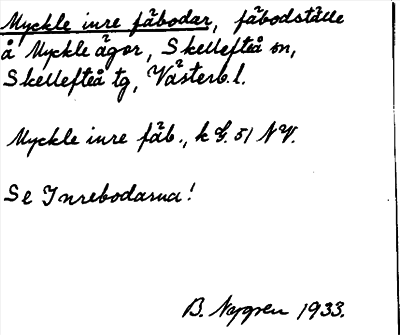 Myckle inre fäbodar, fäbodställe
å Myckle ägor, Skellefteå sn,
Skellefteå tg, Västerb. l.
Myckle inre fäb., k G. 51 NV.
Se Inrebodarna!
B. Nygren 1933.